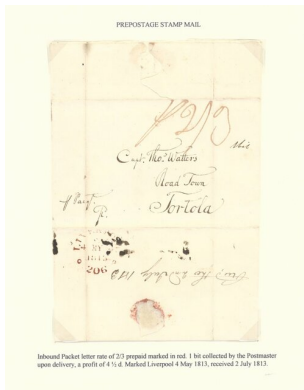 PREPOSTAGE STAMP MAIL
2/3
1 bit
Capt. Tho.s Walters
Road Town
Tortola
p. Pacqt
P.
206
Inbound Packet letter rate of 2/3 prepaid marked in red. 1 bit collected by the Postmaster
upon delivery, a profit of 4 ½ d. Marked Liverpool 4 May 1813, received 2 July 1813.